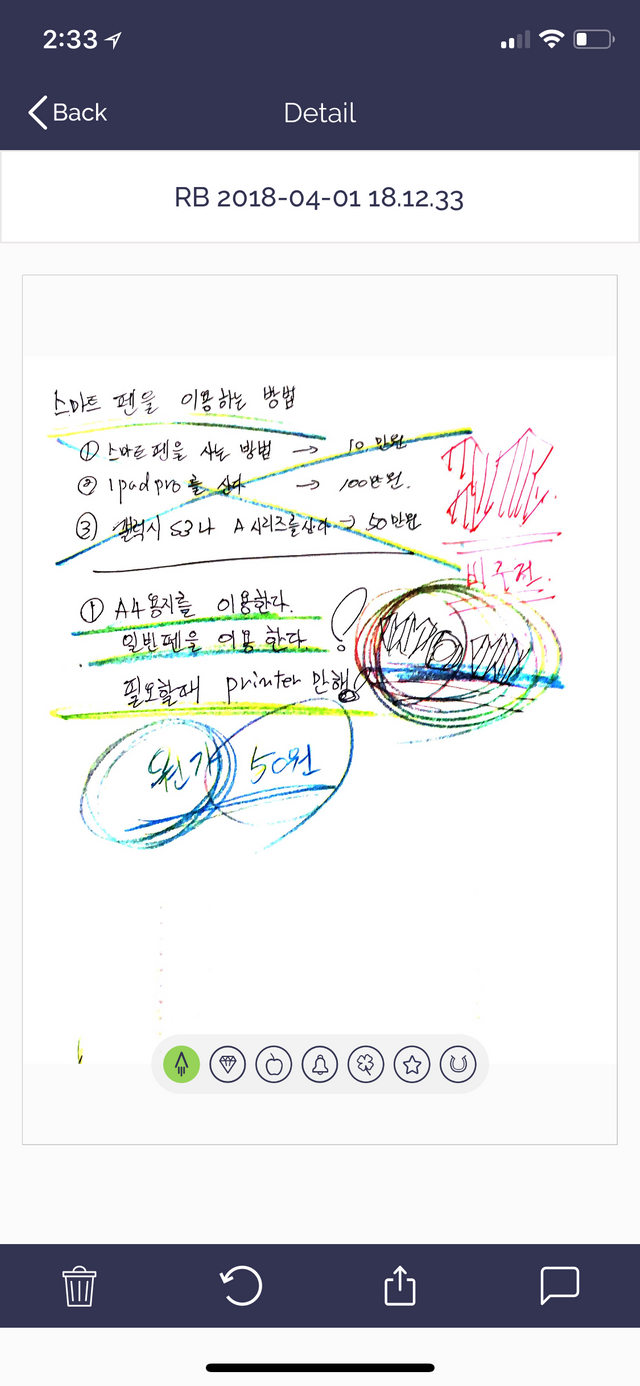 2:33
Back
Detail
RB 2018-04-01 18.12.33
스마트 펜을 이용하는 방법
① 스마트펜을 사는 방법 → 10 만원
② Ipad pro를 산다 → 100만원.
③ 갤럭시 S3나 A시리즈를산다 → 50만원
① A4용지를 이용한다.
일반펜을 이용 한다
필요할때 printer 만해
50원